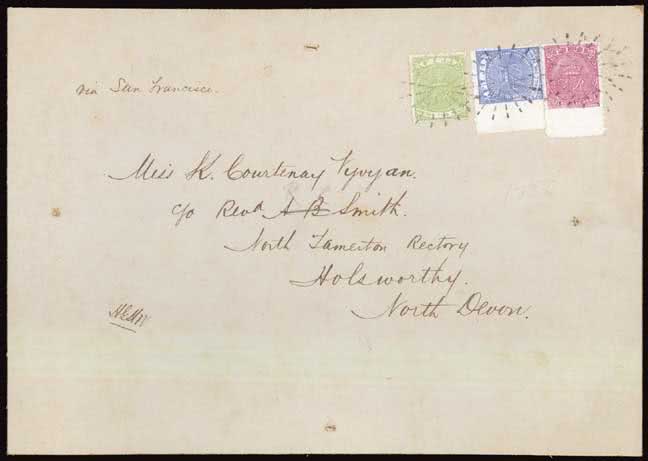 via San Francisco.
Miss K. Courtenay Vyvyan.
c/o Revd A B Smith.
North Tamerton Rectory
Holsworthy.
North Devon.